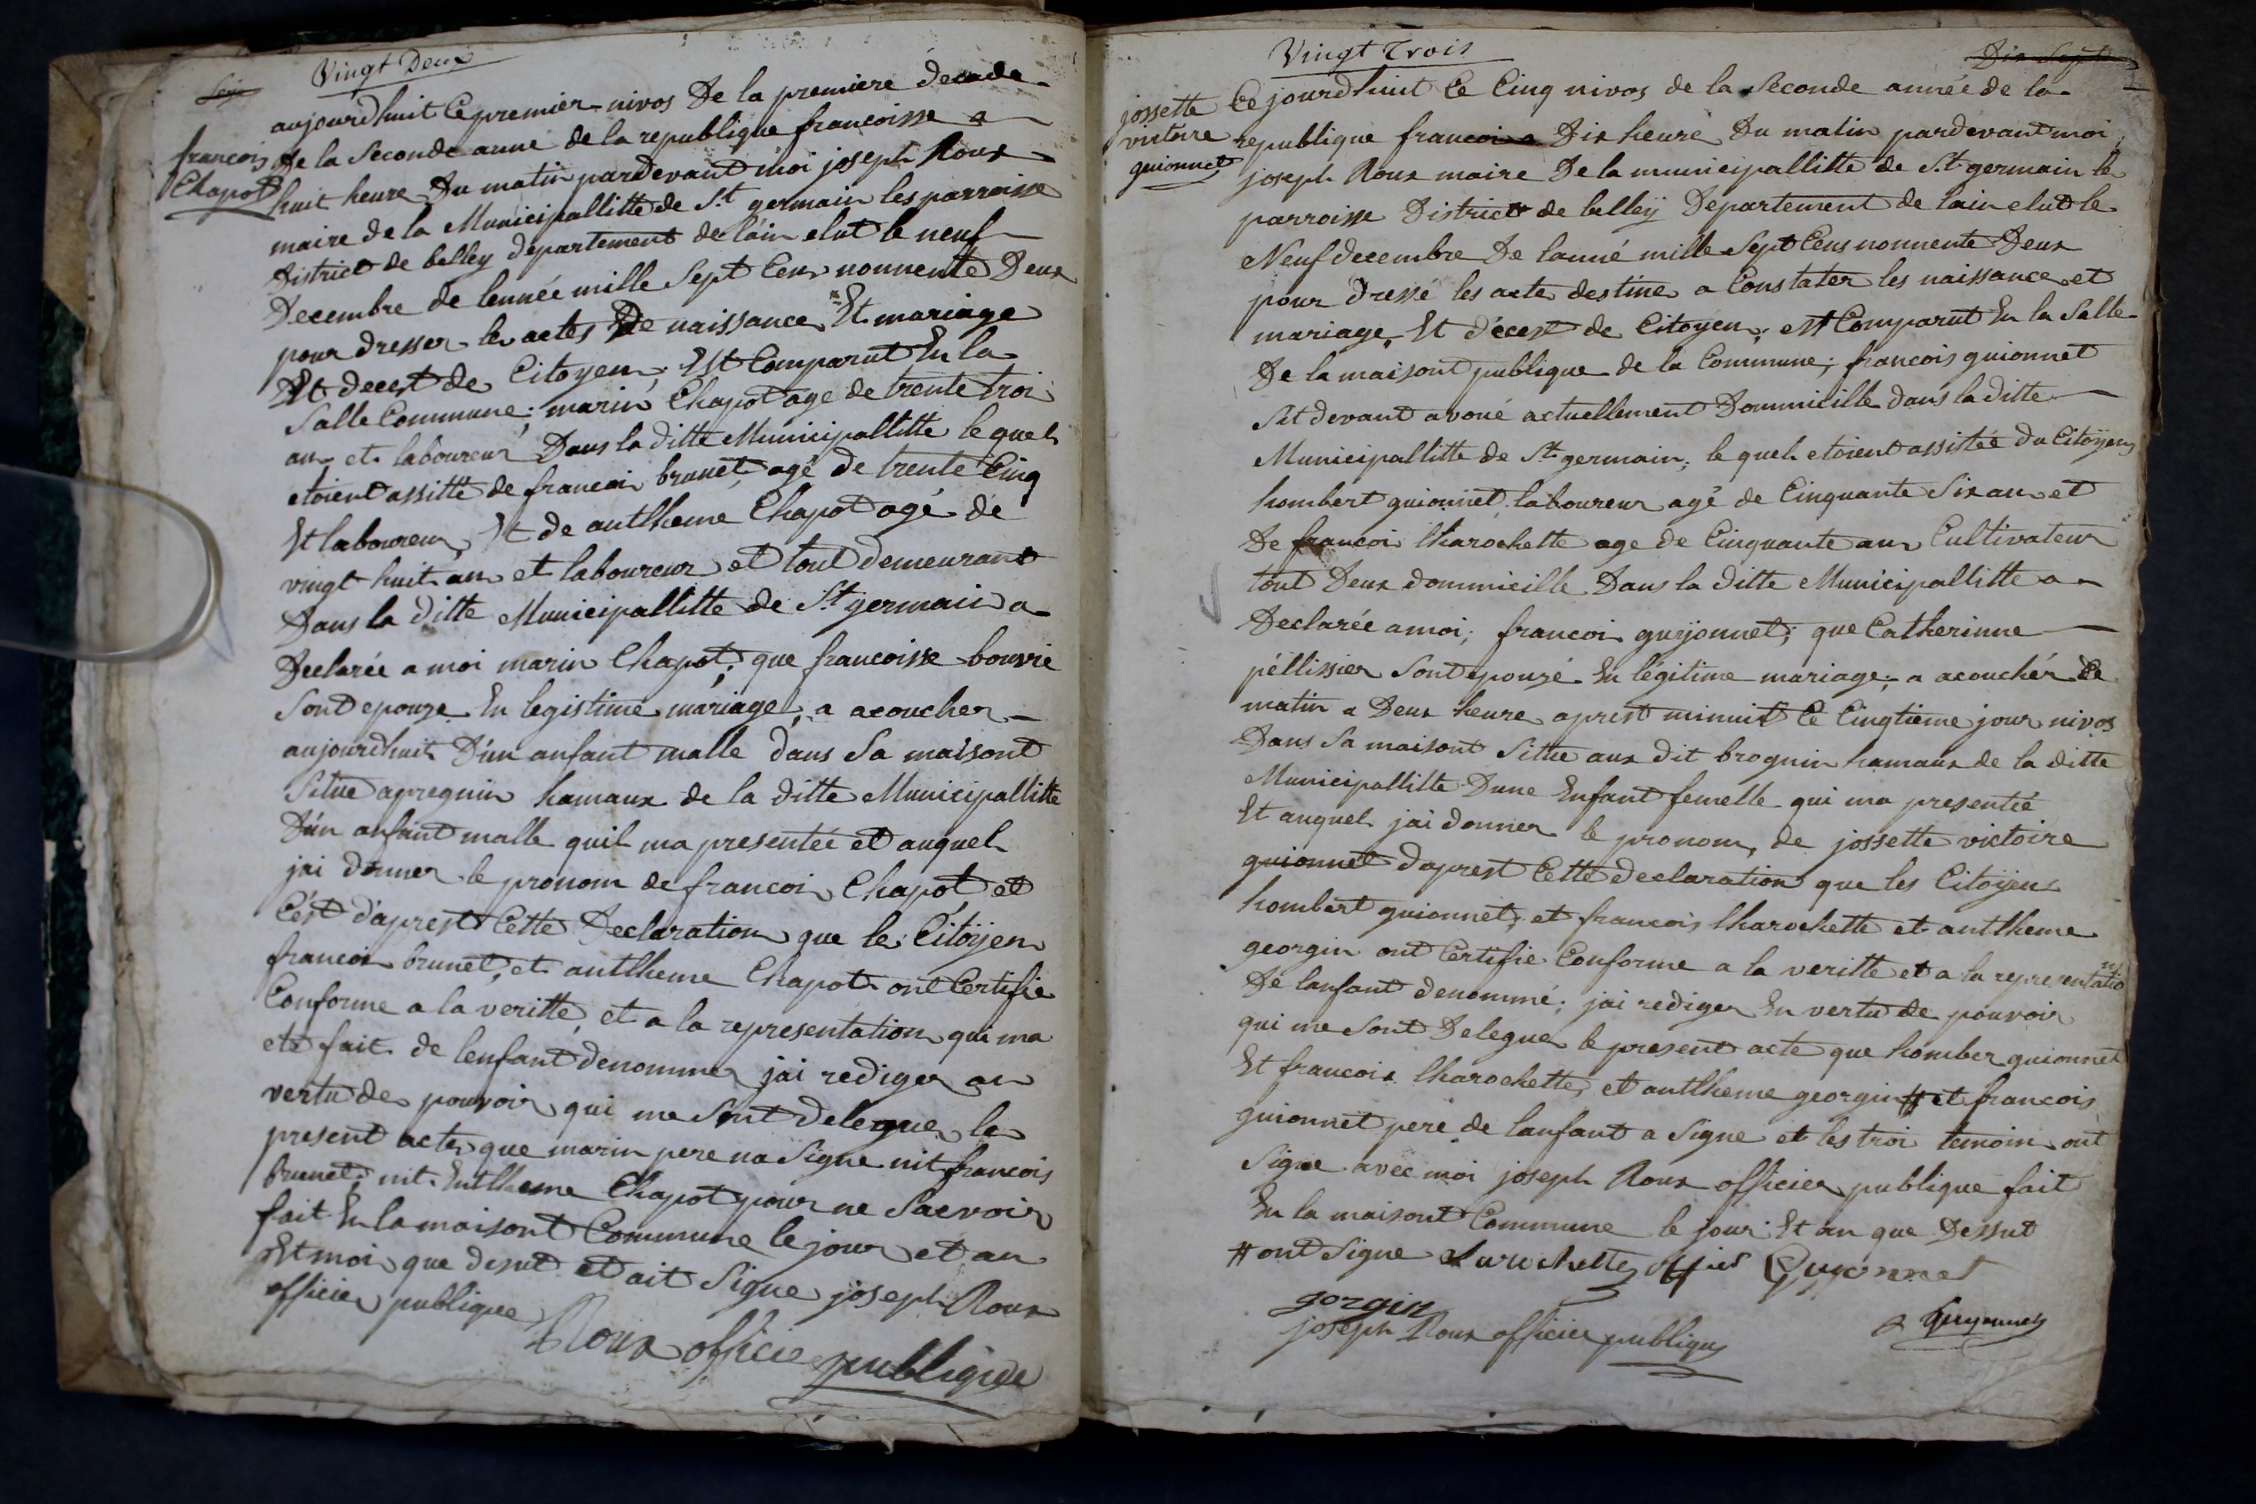 Seize
Vingt Deux
françois
Chapot
aujourdhuit Ce premier nivos De la premiere décade
de la Seconde anné de la republique francoisse a
huit heure Du matin pardevant moi joseph Roux
maire de la Municipallitté de St germain les parroisse
District de belley département de lain elut le neuf
Decembre de lennée mille Sept Cens nonnente Deux
pour dresser les actes De naissance Et mariage
Et decest de Citoyen, Est Comparut En la
Salle Commune; marin Chapot age de trente troi
ans et laboureur Dans la ditte Municipallitte le quel
etoient assitté de francoi brunet agé de trente Cinq
Et laboureur, Et de antlheme Chapot agé de
vingt huit ans et laboureur et tout demeurant
Dans la ditte Municipallitte de St germain a
Declarée a moi marin Chapot, que francoisse bouvié
Sont epouze En legistime mariage, a acoucher
aujourdhuit D'un anfant malle dans Sa maisont
Situé apregnin hamaux de la ditte Municipallitte
D'un anfant malle quil ma presentée et auquel
jai donner le pronom de francoi Chapot, et
C'est d'aprest Cette Declaration que les Citöyen
francoi brunet, et antlheme Chapot ont Certifié
Conforme a la veritté, et a la representation qui ma
eté fait de lenfant denommer jai rediger an
vertu des pouvoir qui me Sont deleguer le
present acte, que marin pere na Signe nit francois
brunet, nit Entlheme Chapot pour ne Scavoir
fait En la maisont Commune le jour et an
Et moi que desut et ait Signe joseph Roux
officier publique
Roux officie publiqide
Vingt Trois
Dix Sept
jossette
victoire
guionnet
Ce jourdhuit Ce Cinq nivos de la Seconde année de la
republique francois a Dix heure Du matin pardevant moi
joseph Roux maire De la municipallitte de St germain le
parroisse District de belleÿ Departement de lain elut le
Neuf decembre De lanné mille Sept Cens nonnente Deux
pour dressé les acte destine a Constater les naissance et
mariage, Et décest de Citoyen, est Comparut En la Salle
De la maisont publique de la Commune; francois guionnet
Sit devant avoué actuellement Dommicille dans la ditte
Municipallitte de St germain; le quel etoient assistée Du Citoÿens
hombert guionnet laboureur agé de Cinquante Six an et
De francoi lharochette age de Cinquante an Cultivateur
tout Deux dommicille Dans la ditte Municipallitte a
Declarée a moi; francoi guÿonnet; que Catherinne
péllissier Sont épouzé En légitime mariage, a acouchér Ce
matin a Deux heure aprest minuit Ce Cinqtieme jour nivos
Dans Sa maisont Sittue aux dit brognin hamaux de la ditte
Municipallitte Dune Enfant femelle qui ma presentée
Et auquel jai donner le pronom de jossette victoire
guionnet daprest Cette declaration que les Citoÿens
hombert guionnet, et francois lharochette et antlheme
georgin ont Certifie Conforme a la veritte et a la representation
De lanfant denommé; jai rediger En vertu de pouvoir
qui me Sont Deleguer le present acte que homber guionnet
Et francois lharochette, et antlheme georgin # et francois
guionnet pere de lanfant a Signe et les troi temoin ont
Signe avec moi joseph Roux officier publique fait
En la maisont Commune le jour Et an que Dessut
# ont Signe Larochette Guyonnet
gorgin
joseph Roux officier publique
Guyonnet